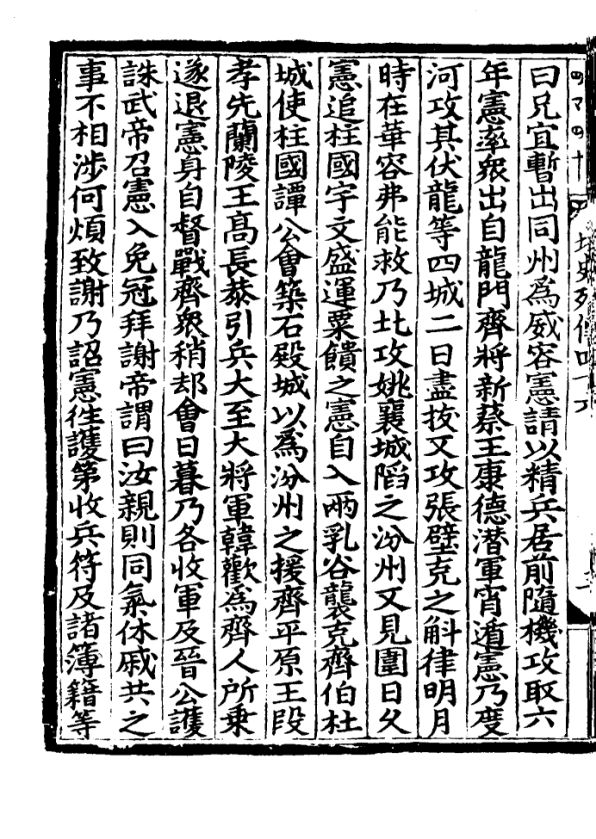 曰兄宜暫出同州爲威容憲請以精兵居前隨機攻取六
年憲率衆出自龍門齊將新蔡王康德潛軍宵遁憲乃度
河攻其伏龍等四城二日盡拔又攻張壁克之斛律明月
時在華容弗能救乃北攻姚襄城陷之汾州又見圍日久
憲追柱國宇文盛運粟饋之憲自入兩乳谷襲克齊伯杜
城使柱國譚公會築石殿城以爲汾州之援齊平原王段
孝先蘭陵王高長恭引兵大至大將軍韓歡爲齊人所乗
遂退憲身自督戰齊衆稍却會日暮乃各收軍及晉公護
誅武帝召憲入免冠拜謝帝謂曰汝親則同氣休戚共之
事不相涉何煩致謝乃詔憲往護第收兵符及諸簿籍等